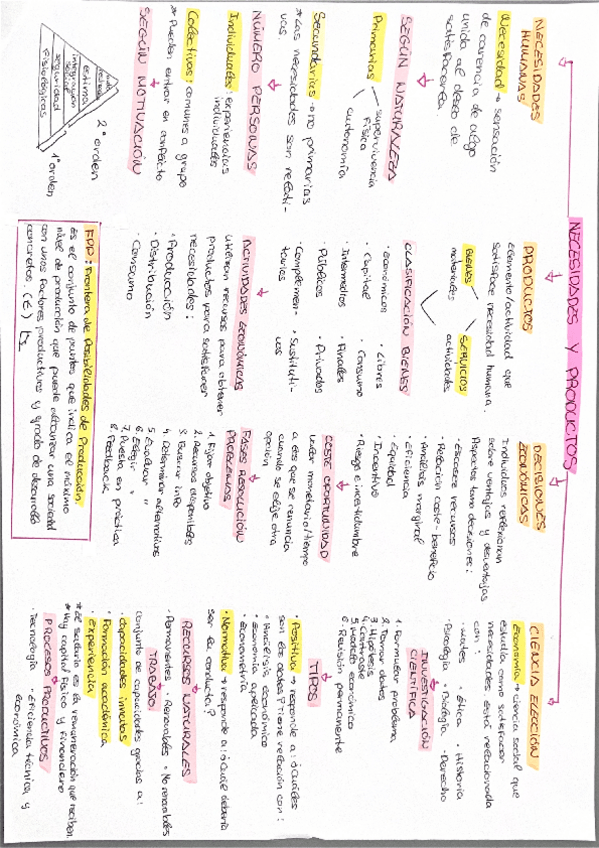 NECESIDADES Y PRODUCTOS
NECESIDADES
HUMANAS
Necesidad → sensación
de carencia de algo
unida al deseo de
satisfacerla.
SEGÚN NATURALEZA
Primarias
supervivencia
física
autonomía
Secundarias → no primarias
* Las necesidades son relati-
vas.
NÚMERO PERSONAS
Individuales: experiencias
individuales
Colectivas: comunes a grupo
* Pueden entrar en conflicto
SEGÚN MOTIVACIÓN
estima
integración
social
seguridad
Fisiológicas
2º orden
1º orden
PRODUCTOS
elemento/actividad que
satisface necesidad humana.
BIENES
materiales
SERVICIOS
actividades
CLASIFICACIÓN BIENES
· Económicos · Libres
· Capital · Consumo
· Intermedios · Finales
· Públicos · Privados
· Complemen- · Sustituti-
tarios vos
ACTIVIDADES ECONÓMICAS
utilizan recursos para obtener
productos para satisfacer
necesidades:
· Producción
· Distribución
· Consumo
FPP: Frontera de Posibilidades de Producción.
es el conjunto de puntos que indica el máximo
nivel de producción que puede alcanzar una sociedad
con unos factores productivos y grado de desarrollo
concretos.
DECISIONES
ECONÓMICAS
Individuos reflexionan
sobre ventajas y desventajas
Aspectos toma decisiones:
· Escasez recursos
· Relación coste-beneficio
· Análisis marginal
· Eficiencia
· Equidad
· Incentivo
· Riesgo e incertidumbre
COSTE OPORTUNIDAD
valor monetario/tiempo
a los que se renuncia
cuando se elige otra
opción
FASES RESOLUCIÓN
PROBLEMAS
1. Fijar objetivo
2. Recursos disponibles
3. Buscar info
4. Determinar alternativas
5. Evaluar "
6. Elegir "
7. Puesta en práctica
8. Feedback
CIENCIA ELECCIÓN
Economía → ciencia social que
estudia como satisfacer
necesidades. Está relacionada
con:
· Mates · Ética · Historia
· Psicología · Biología · Derecho
INVESTIGACIÓN
CIENTÍFICA
1. Formular problema
2. Tomar datos
3. Hipótesis
4. Contraste
5. Modelo económico
6. Revisión permanente
TIPOS
· Positiva → responde a: ¿cuáles
son los datos? Tiene relación con:
* Análisis económico
* Economía aplicada
* Econometría
· Normativa → responde a: ¿cuál debería
ser la conducta?
RECURSOS NATURALES
· Permanentes · Renovables · No renovables
TRABAJO
Conjunto de capacidades gracias a:
· Capacidades innatas
· Formación académica
· Experiencia
* El salario es la remuneración que reciben.
* Hay capital físico y financiero
PROCESOS PRODUCTIVOS
· Tecnología · Eficiencia técnica y
económica